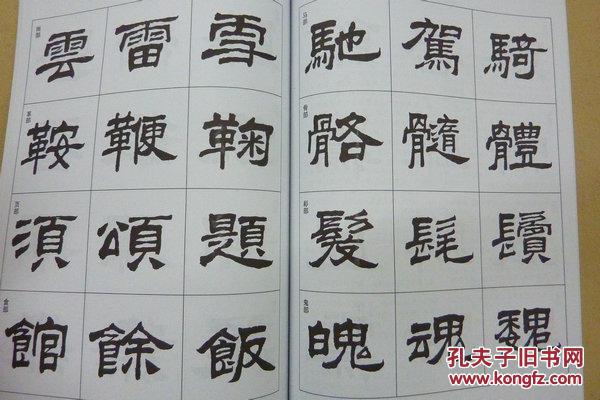 雨部
雲 雷 雪
革部
鞍 鞭 鞠
頁部
須 頌 題
食部
館 餘 飯
马部
馳 駕 騎
骨部
骼 髓 體
髟部
髮 髦 鬢
鬼部
魄 魂 魏
孔夫子旧书网
www.kongfz.com